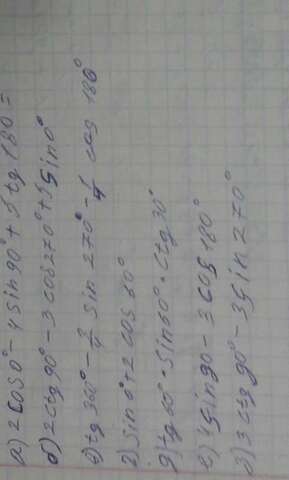 а) 2 cos 0° - 4 sin 90° + 5 tg 180 =
б) 2 ctg 90° - 3 cos 270° + 5 sin 0°
в) tg 360° - 3/4 sin 270° - 1/4 cos 180°
г) sin 0° + 2 cos 60°
д) tg 60° · sin 60° · ctg 30°
е) 4 sin 90 - 3 cos 180°
д) 3 ctg 90° - 3 sin 270°